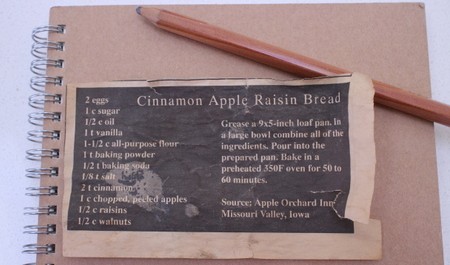 Cinnamon Apple Raisin Bread
2 eggs
1 c sugar
1/2 c oil
1 t vanilla
1-1/2 c all-purpose flour
1 t baking powder
1/2 t baking soda
1/8 t salt
2 t cinnamon
1 c chopped, peeled apples
1/2 c raisins
1/2 c walnuts
Grease a 9x5-inch loaf pan. in
a large bowl combine all of the
ingredients. Pour into the
prepared pan. Bake in a
preheated 350F oven for 50 to
60 minutes.
Source: Apple Orchard Inn
Missouri Valley, Iowa